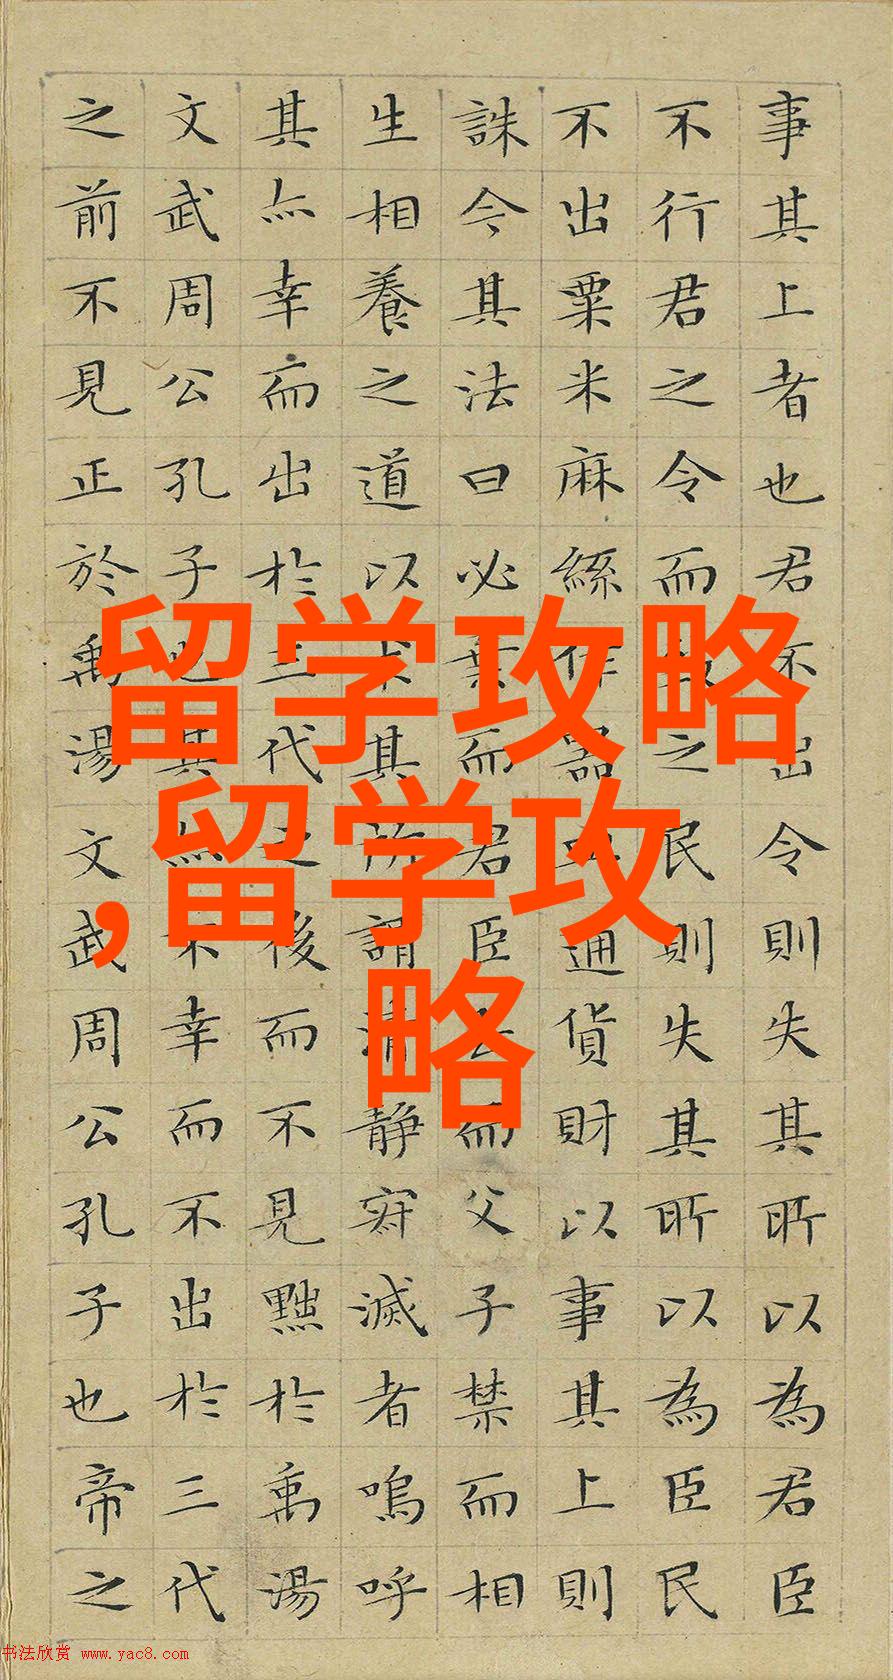 事其上者也君不出令則失其所以為君臣
不行君之令而致之民則失其所以為臣民
不出粟米麻絲作器皿通貨財以事其上則
誅今其法曰必棄而君臣去而父子禁而相
生相養之道以求其所謂清静寂滅者嗚呼
其亦幸而出於三代之後而不見黜於禹湯
文武周公孔子也其亦不幸而不出於三代
之前不見正於禹湯文武周公孔子也帝之
留学攻略
,留学攻
略
书法欣赏 www.yac8.com